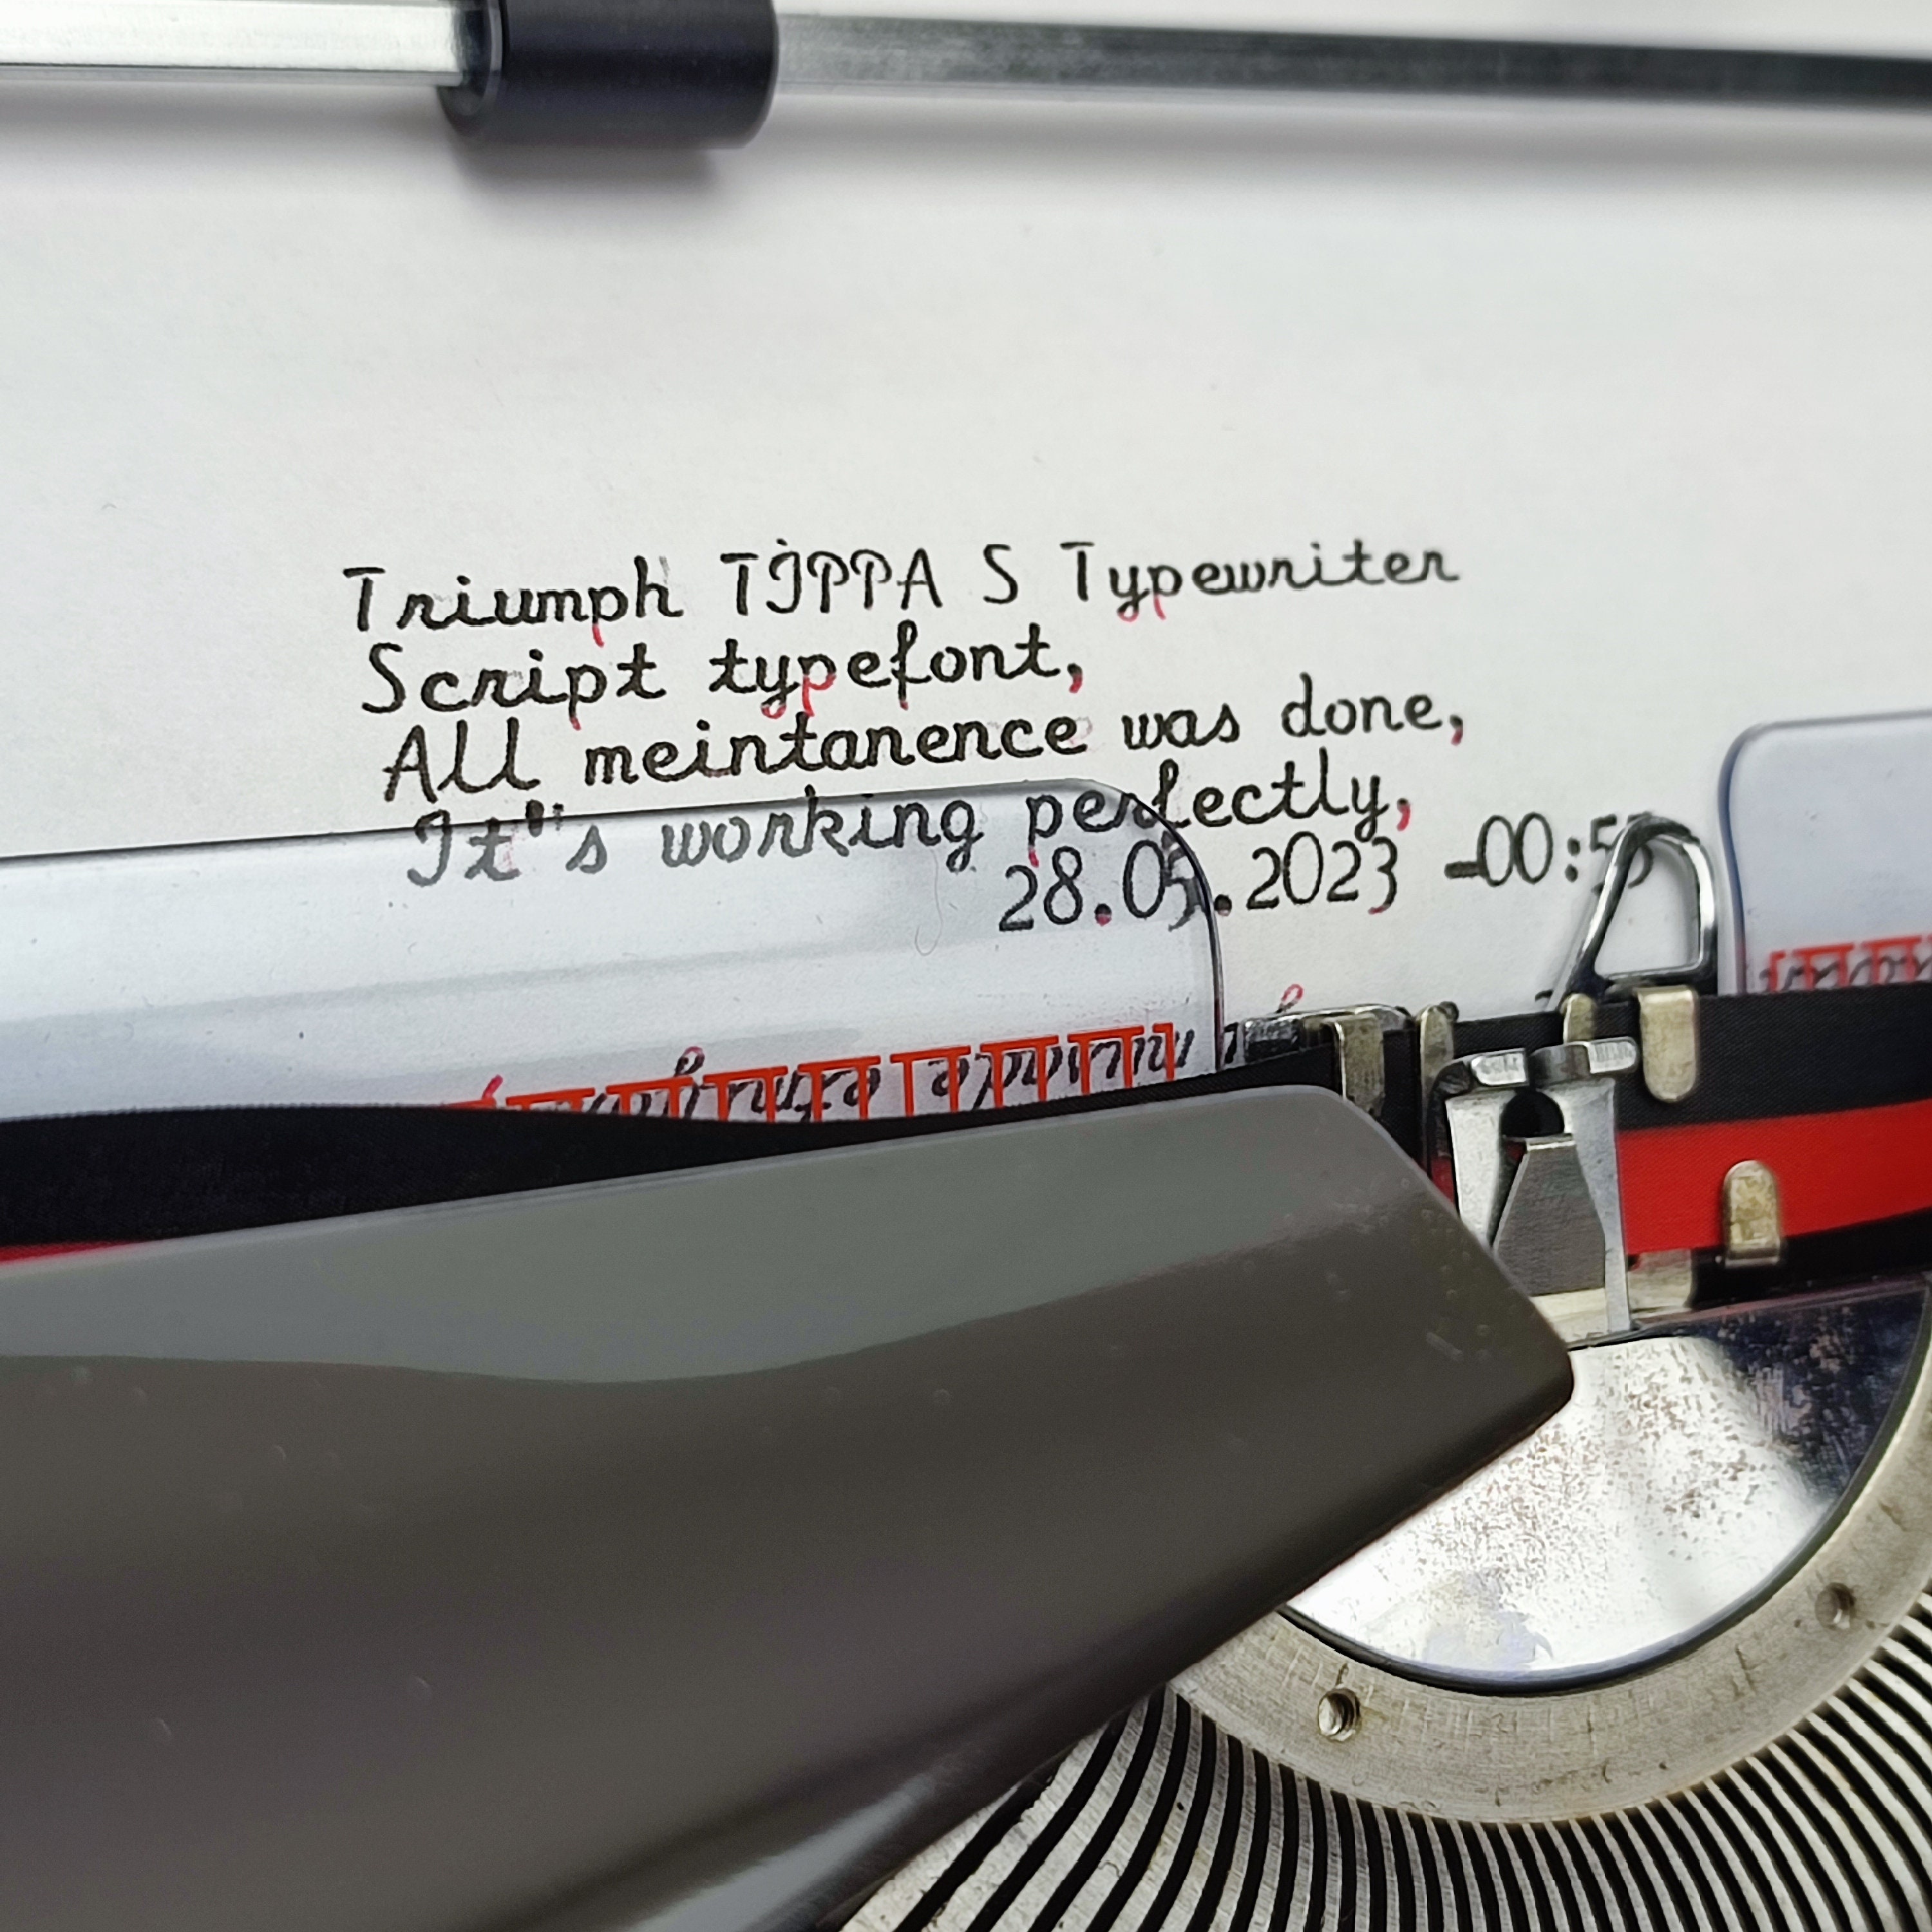 Triumph TIPPA S Typewriter
Script typefont,
All meintanence was done,
It"s working perfectly,
28.05.2023 -00:55